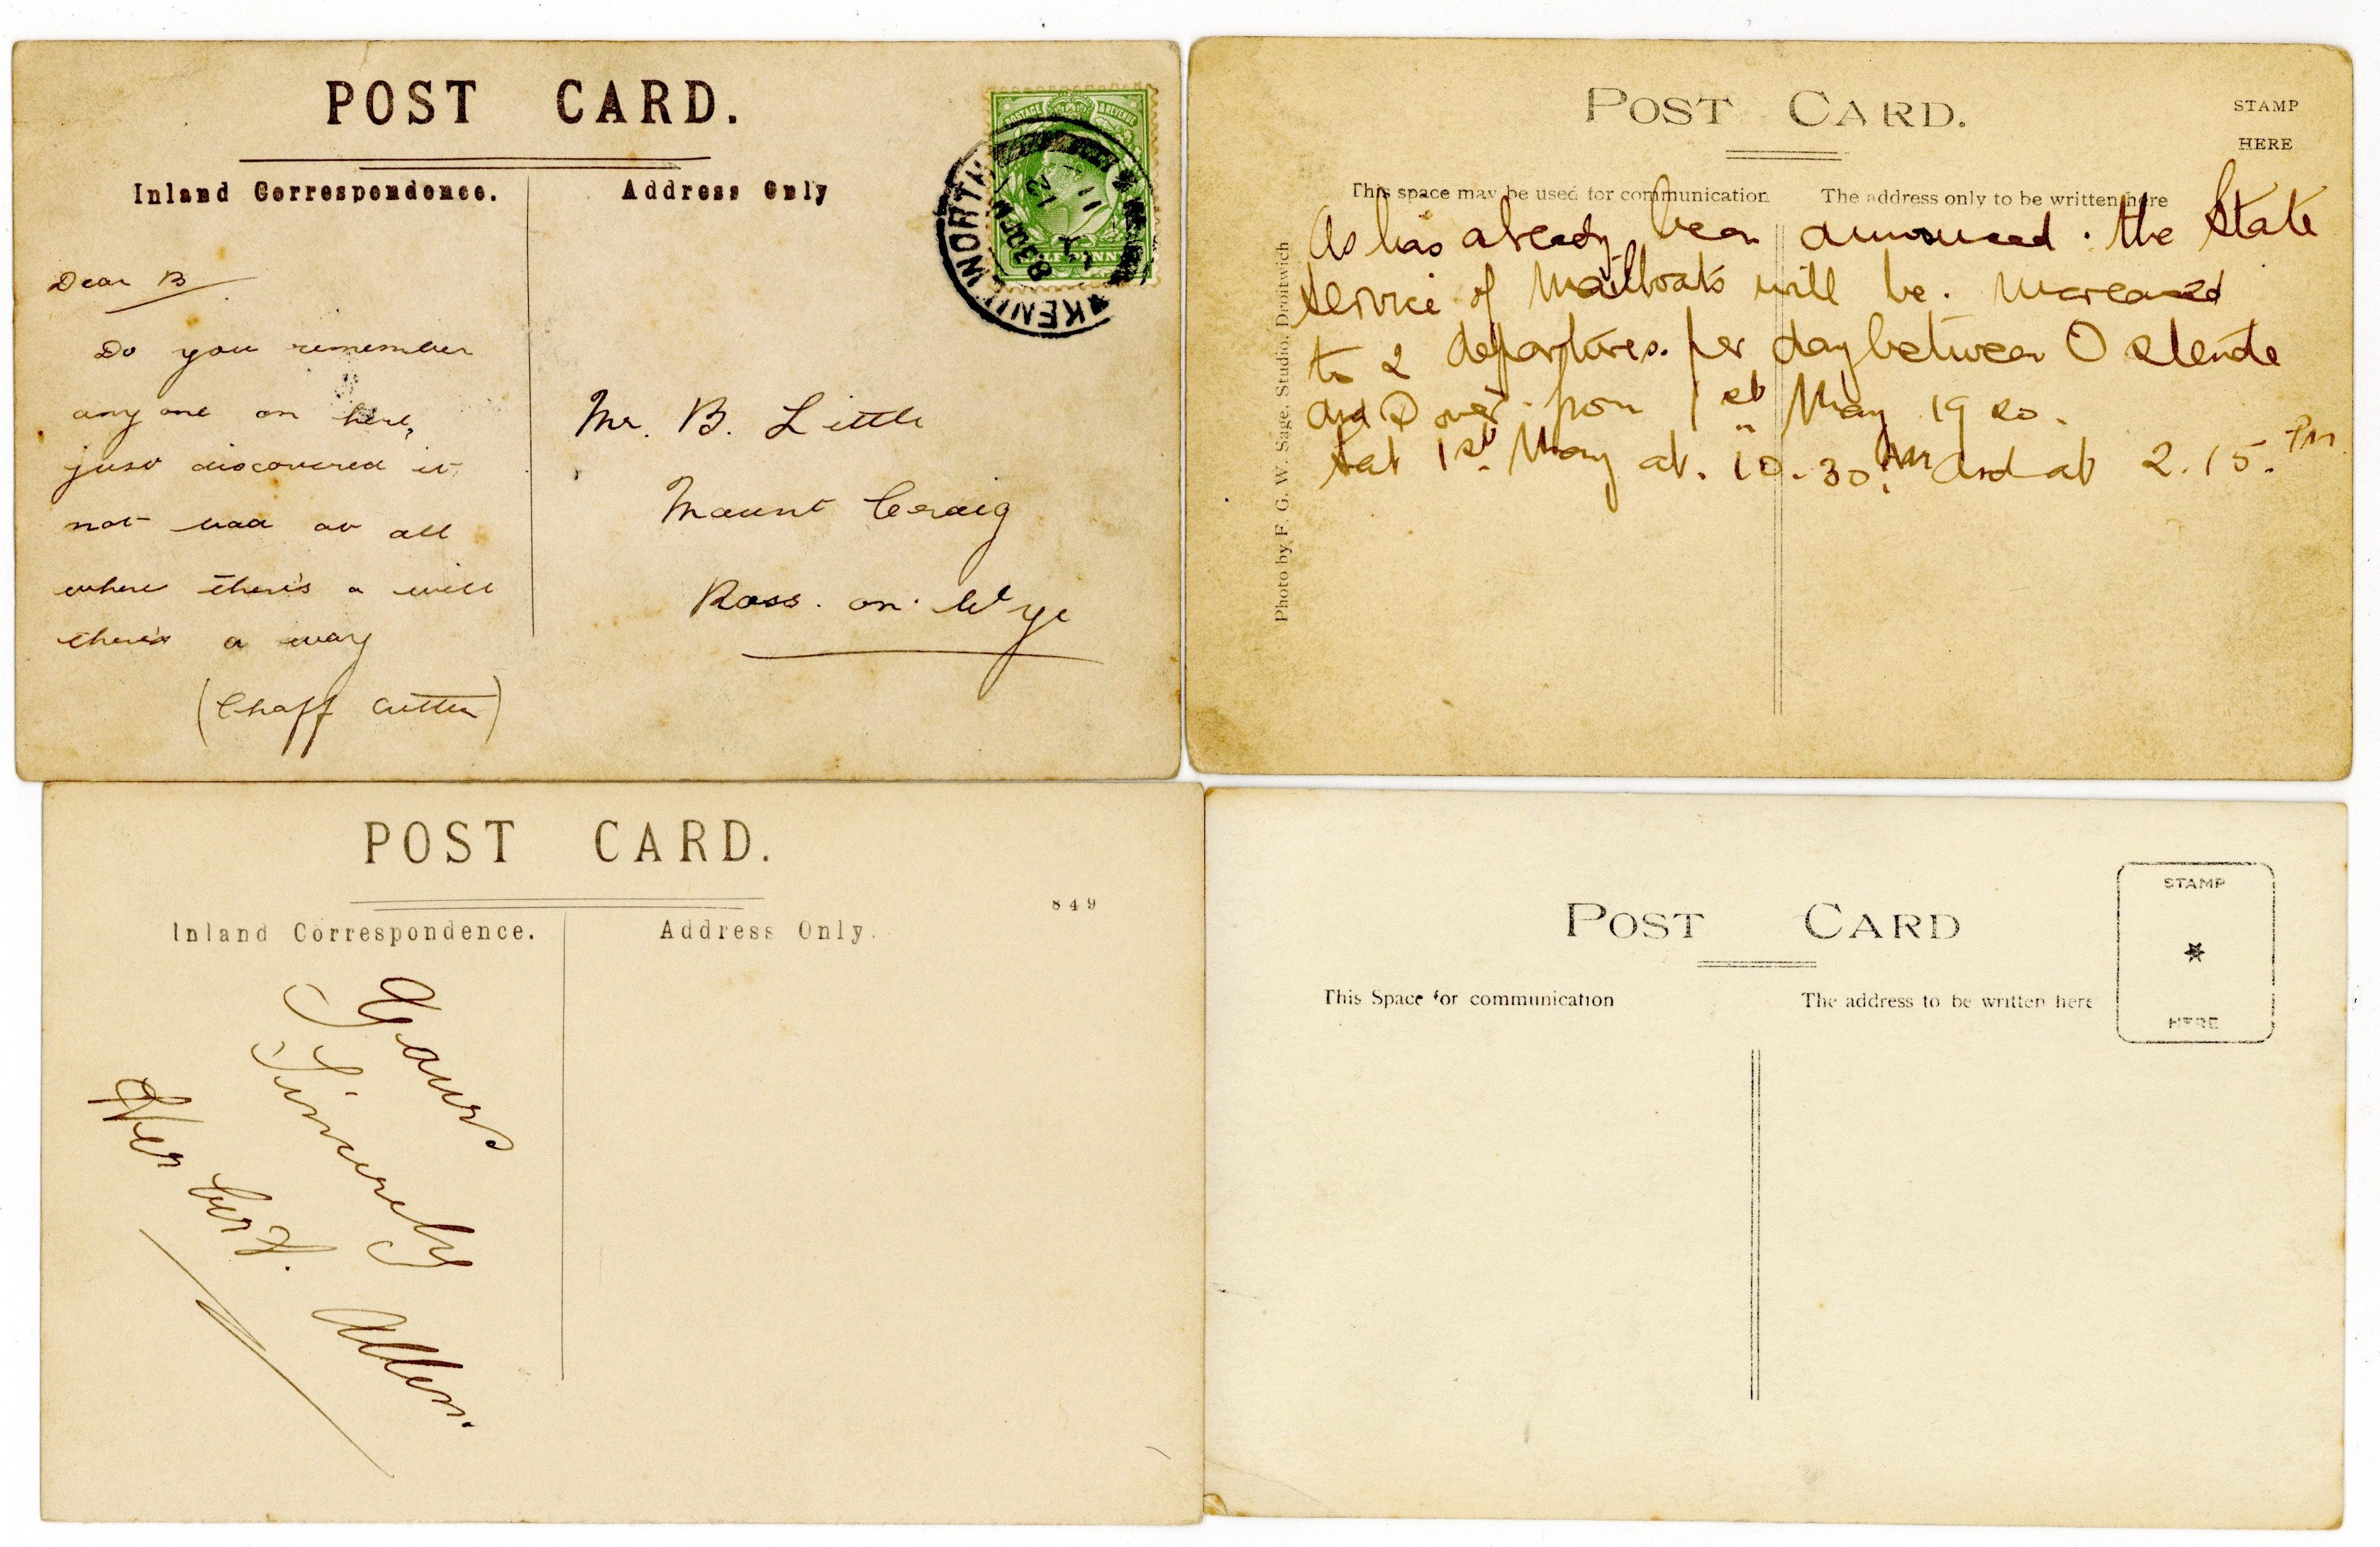 POST CARD.
Inland Correspondence.
Address Only
POSTAGE & REVENUE
KENILWORTH
Dear B
Do you remember
any one on here,
just discovered it
not bad at all
where there's a will
there's a way
(Chaff Cutter)
Mr. B. Little
Mount Craig
Ross. on. Wye
POST CARD.
STAMP
HERE
This space may be used for communication
The address only to be written here
Photo by F. G. W. Sage, Studio, Droitwich
As has already been announced. the State
service of Mailboats will be. increased
to 2 departures. per day between Ostende
and Dover. from 1st May 1920.
Sat 1st. May at. 10.30. AM and at 2.15. PM
POST CARD.
849
Inland Correspondence.
Address Only.
Yours
Sincerely
Herbert. Allen.
POST CARD
STAMP
HERE
This Space for communication
The address to be written here